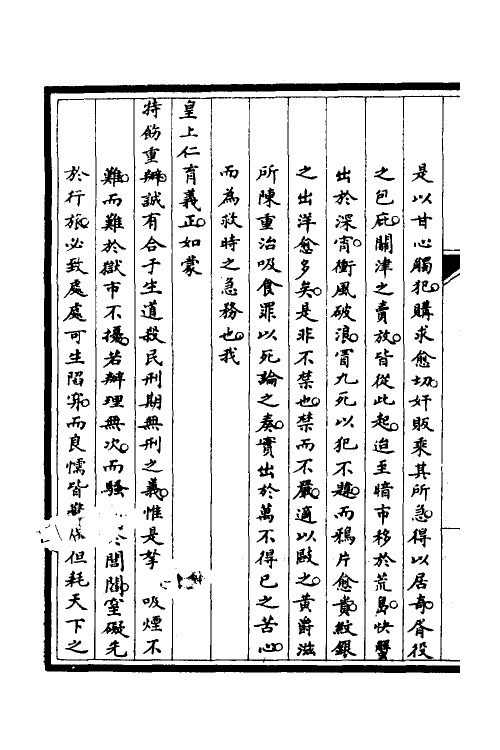 是以甘心觸犯購求愈切奸販乘其所急得以居奇胥役
之包庇關津之賣放皆從此起迨至暗市移於荒島快蟹
出於深宵衝風破浪冒九死以犯不韙而鴉片愈貴紋銀
之出洋愈多矣是非不禁也禁而不嚴適以敺之黃爵滋
所陳重治吸食罪以死論之奏實出於萬不得已之苦心
而為救時之急務也我
皇上仁育義正如蒙
特飭重辦誠有合于生道殺民刑期無刑之義惟是拏 吸煙不
難而難於獄市不擾若辦理無次而騷 閭閻窒礙先
於行旅必致處處可生陷穽而良懦皆 但耗天下之